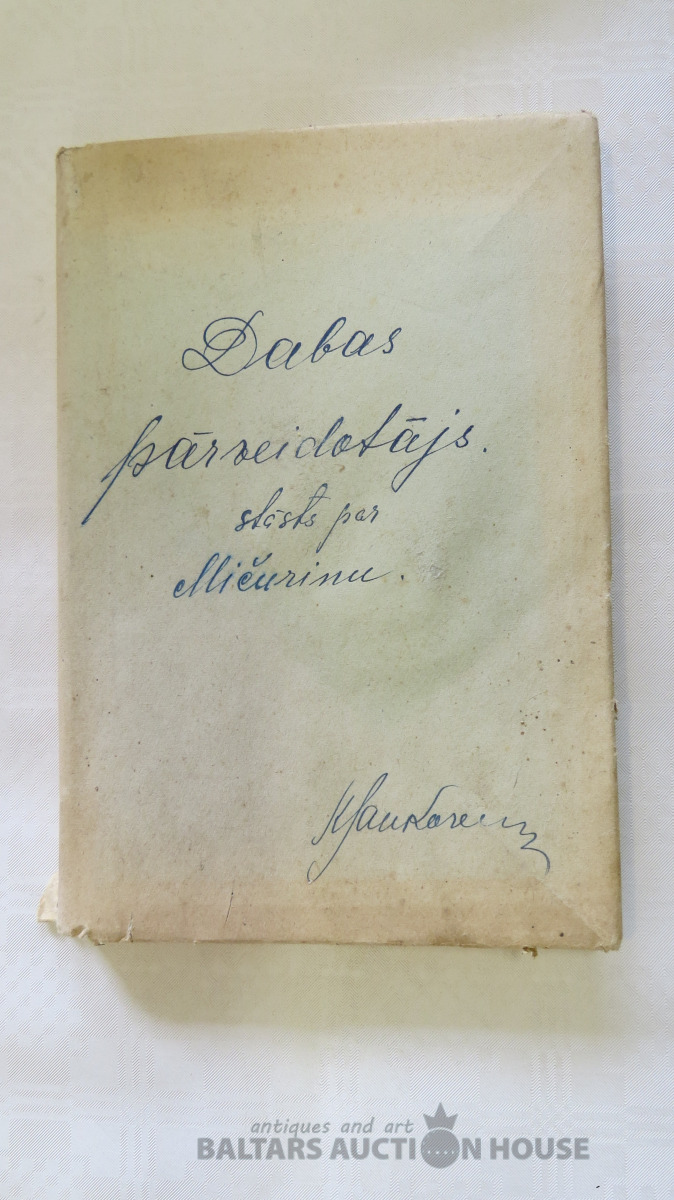 Dabas
pārveidotājs.
stāsts par
Mičurinu.
antiques and art
BALTARS AUCTION HOUSE